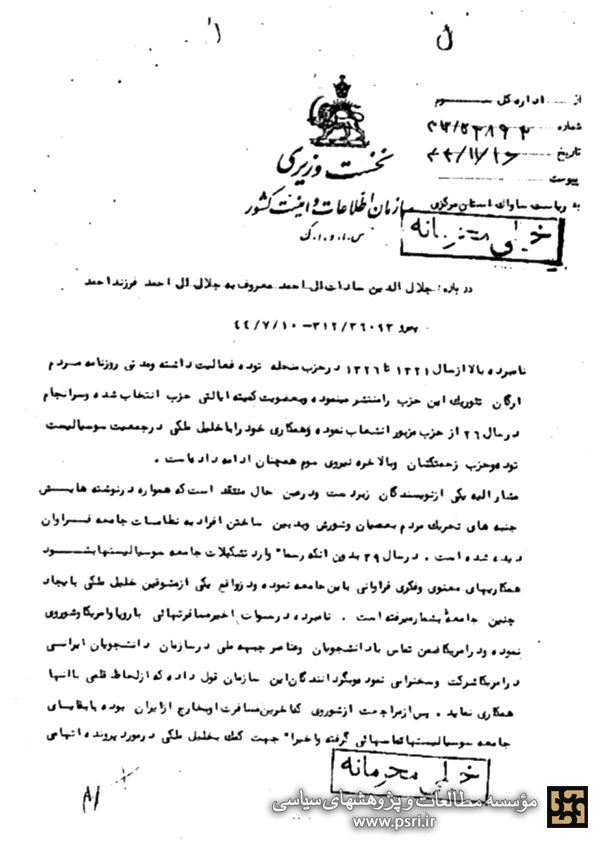 ل
از ــ اداره کل سوم
شماره ۳۱۲/۵۲۸۹۲
تاریخ ۴۴/۱۱/۱۶
پیوست
نخست وزیری
سازمان اطلاعات و امنیت کشور
س.ا.و.ا.ک
به ریاست ساواک استان مرکزی
خیلی محرمانه
درباره : جلال الدین سادات ال احمد معروف به جلال ال احمد فرزند احمد
پیرو ۳۱۲/۳۶۰۹۳ - ۴۴/۷/۱۰
نامبرده بالا از سال ۱۳۲۱ تا ۱۳۲۶ در حزب منحله توده فعالیت داشته و مدتی روزنامه مردم
ارگان تئوریک این حزب را منتشر مینموده و بعضویت کمیته ایالتی حزب انتخاب شده و سرانجام
در سال ۲۶ از حزب مزبور انشعاب نموده و همکاری خود را با خلیل ملکی در جمعیت سوسیالیست
توده و حزب زحمتکشان وبالاخره نیروی سوم همچنان ادامه داده است .
مشارالیه یکی از نویسندگان زبردست ودر عین حال منتقد است که همواره در نوشته هایش
جنبه های تحریک مردم بعصیان وشورش وبدبین ساختن افراد به نظامات جامعه فراوان
دیده شده است . در سال ۳۹ بدون انکه رسما" وارد تشکیلات جامعه سوسیالیستها بشود
همکاریهای معنوی وفکری فراوانی با این جامعه نموده ودر واقع یکی از مشوقین خلیل ملکی با یجاد
چنین جامعۀ بشمار میرفته است . نامبرده در سنوات اخیر مسافرتهائی باروپا وامریکا وشوروی
نموده ودر امریکا ضمن تماس با دانشجویان وعناصر جبهه ملی در سازمان دانشجویان ایرانی
در امریکا شرکت وسخنرانی نموده وبگردانندگان این سازمان قول داده که از لحاظ قلمی با انها
همکاری نماید . پس از مراجعت از شوروی که اخرین مسافرت او بخارج از ایران بوده با بقایای
جامعه سوسیالیستها تماسهائی گرفته واخیرا" جهت کمک بخلیل ملکی در مورد پرونده اتهامی
خیلی محرمانه
مؤسسه مطالعات و پژوهشهای سیاسی
www.psri.ir